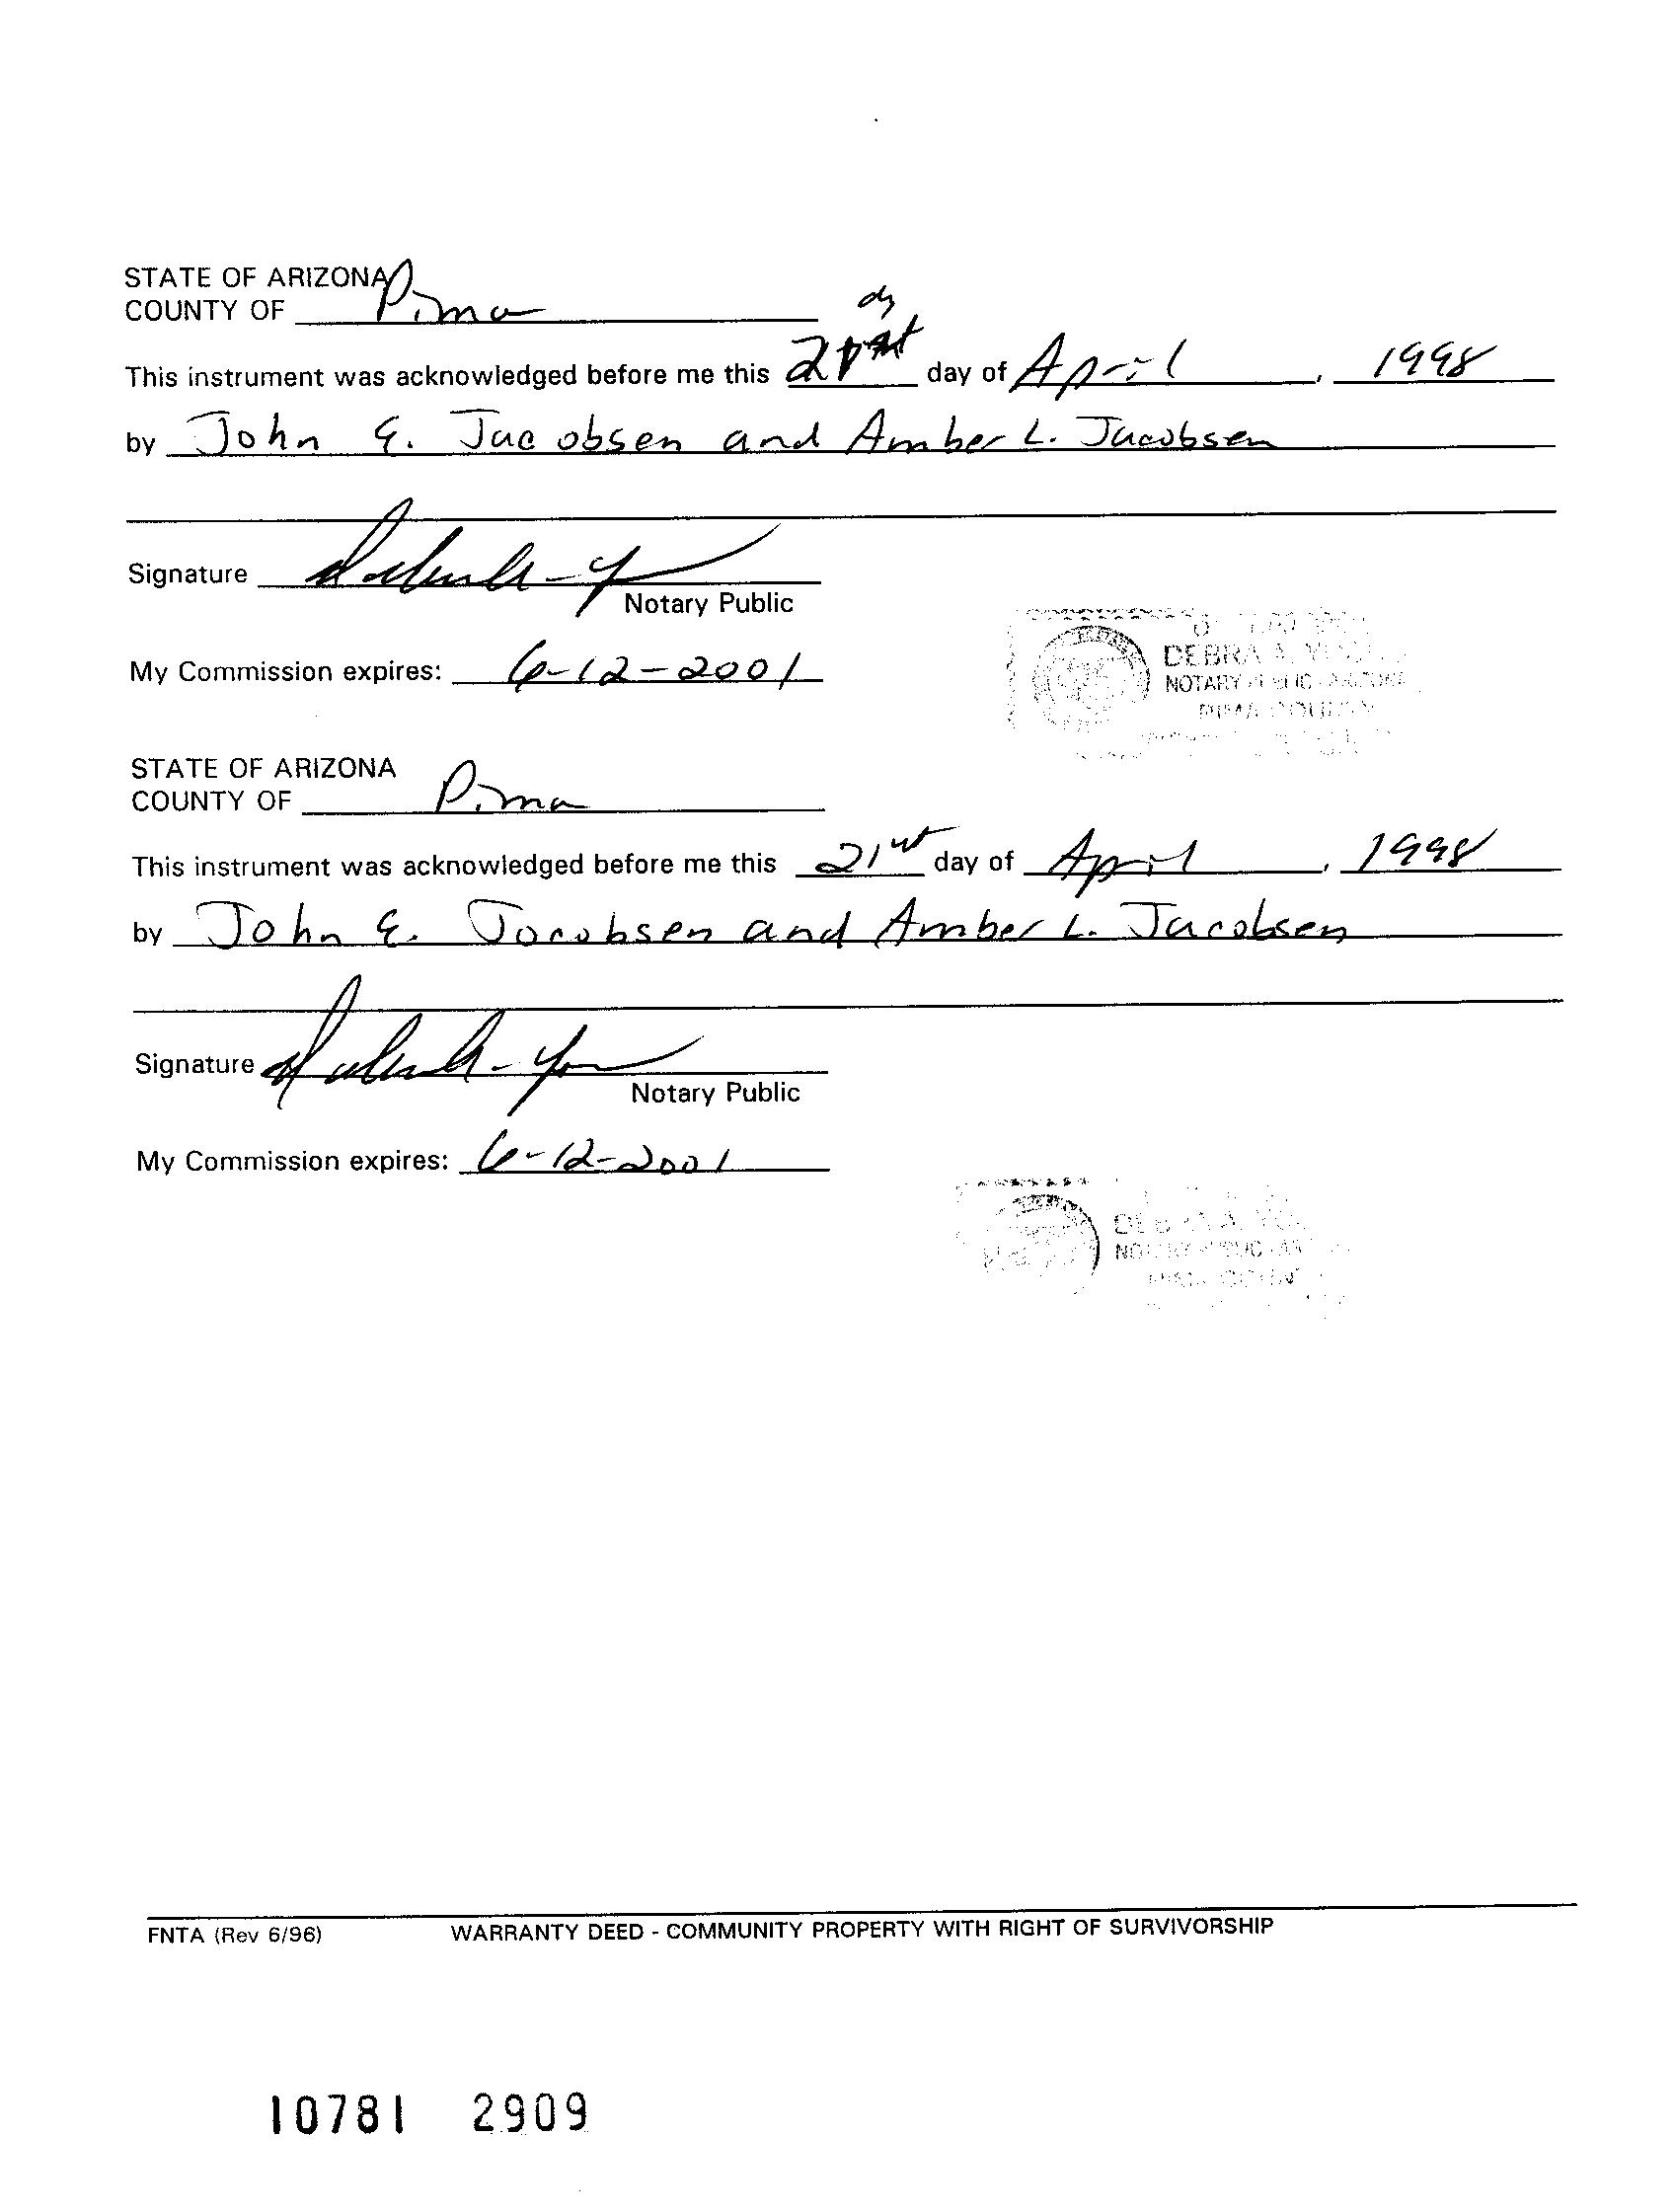 STATE OF ARIZONA
COUNTY OF Pima
This instrument was acknowledged before me this 21st day of April, 1998
by John E. Jacobsen and Amber L. Jacobsen
Signature
Notary Public
My Commission expires: 6-12-2001
DEBRA A.
NOTARY PUBLIC
PIMA COUNTY
STATE OF ARIZONA
COUNTY OF Pima
This instrument was acknowledged before me this 21st day of April, 1998
by John E. Jacobsen and Amber L. Jacobsen
Signature
Notary Public
My Commission expires: 6-12-2001
FNTA (Rev 6/96) WARRANTY DEED - COMMUNITY PROPERTY WITH RIGHT OF SURVIVORSHIP
10781 2909